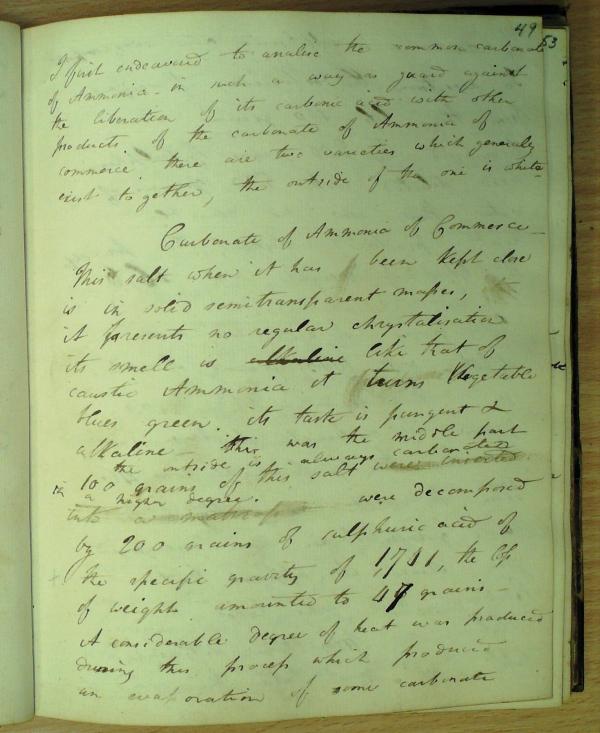 49
53
I first endeavored to analise the common carbonate
of Ammonia - in such a way as guard against
the liberation of its carbonic acid with other
products of the carbonate of Ammonia of
commerce there are two varieties which generaly
exist together, the outside of the one is white
Carbonate of Ammonia of Commerce -
This salt when it has been Kept close
is in solid semitransparent masses,
it presents no regular chrystalisation
its smell is alkaline like that of
caustic Ammonia it turns Vegetable
blues green. its taste is pungent &
alkaline this was the middle part
the outside is always carbonated
100 grains of this salt were inserted
in a higher degree.
into a were decomposed
by 200 grains of sulphuric acid of
the specific gravity of 1,711, the loss
of weight amounted to 47 grains -
A considerable degree of heat was produced
during this process which produced
an evaporation of some carbonate